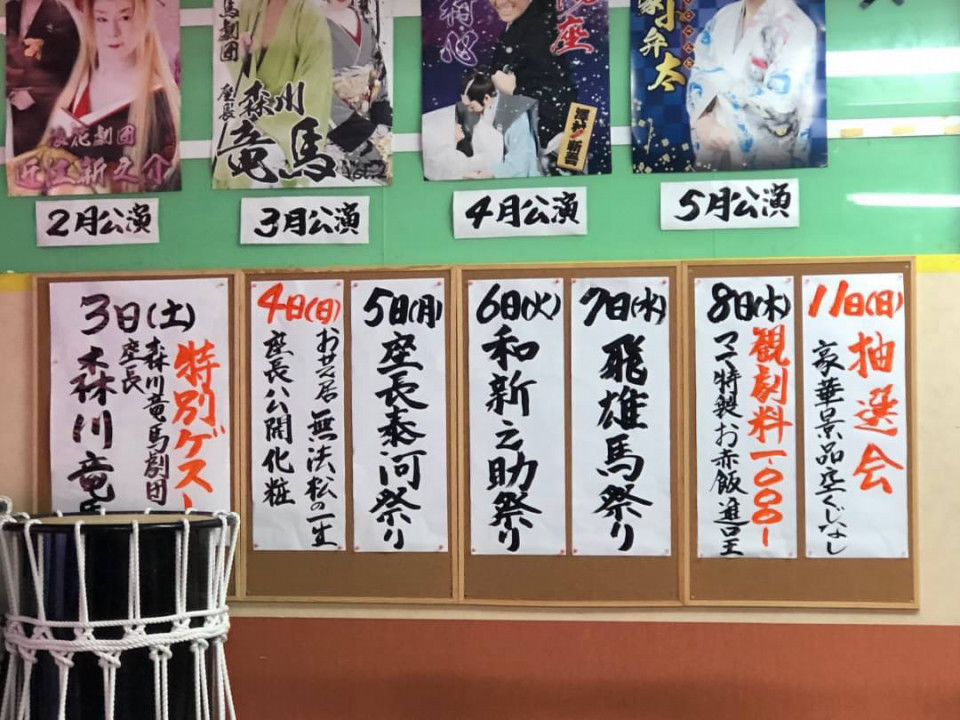 浪花劇団
近江新之介
馬劇団
座長
森川
竜馬
座
澤村新吾
劇弁太
2月公演
3月公演
4月公演
5月公演
3日(土)
特別ゲスト
森川竜馬劇団
座長
森川竜馬
4日(日)
お芝居 無法松の一生
座長公開化粧
5日(月)
座長泰河祭り
6日(火)
和新之助祭り
7日(水)
飛雄馬祭り
8日(木)
観劇料一〇〇〇-
ママ特製お赤飯進呈
11日(日)
抽選会
豪華景品空くじなし